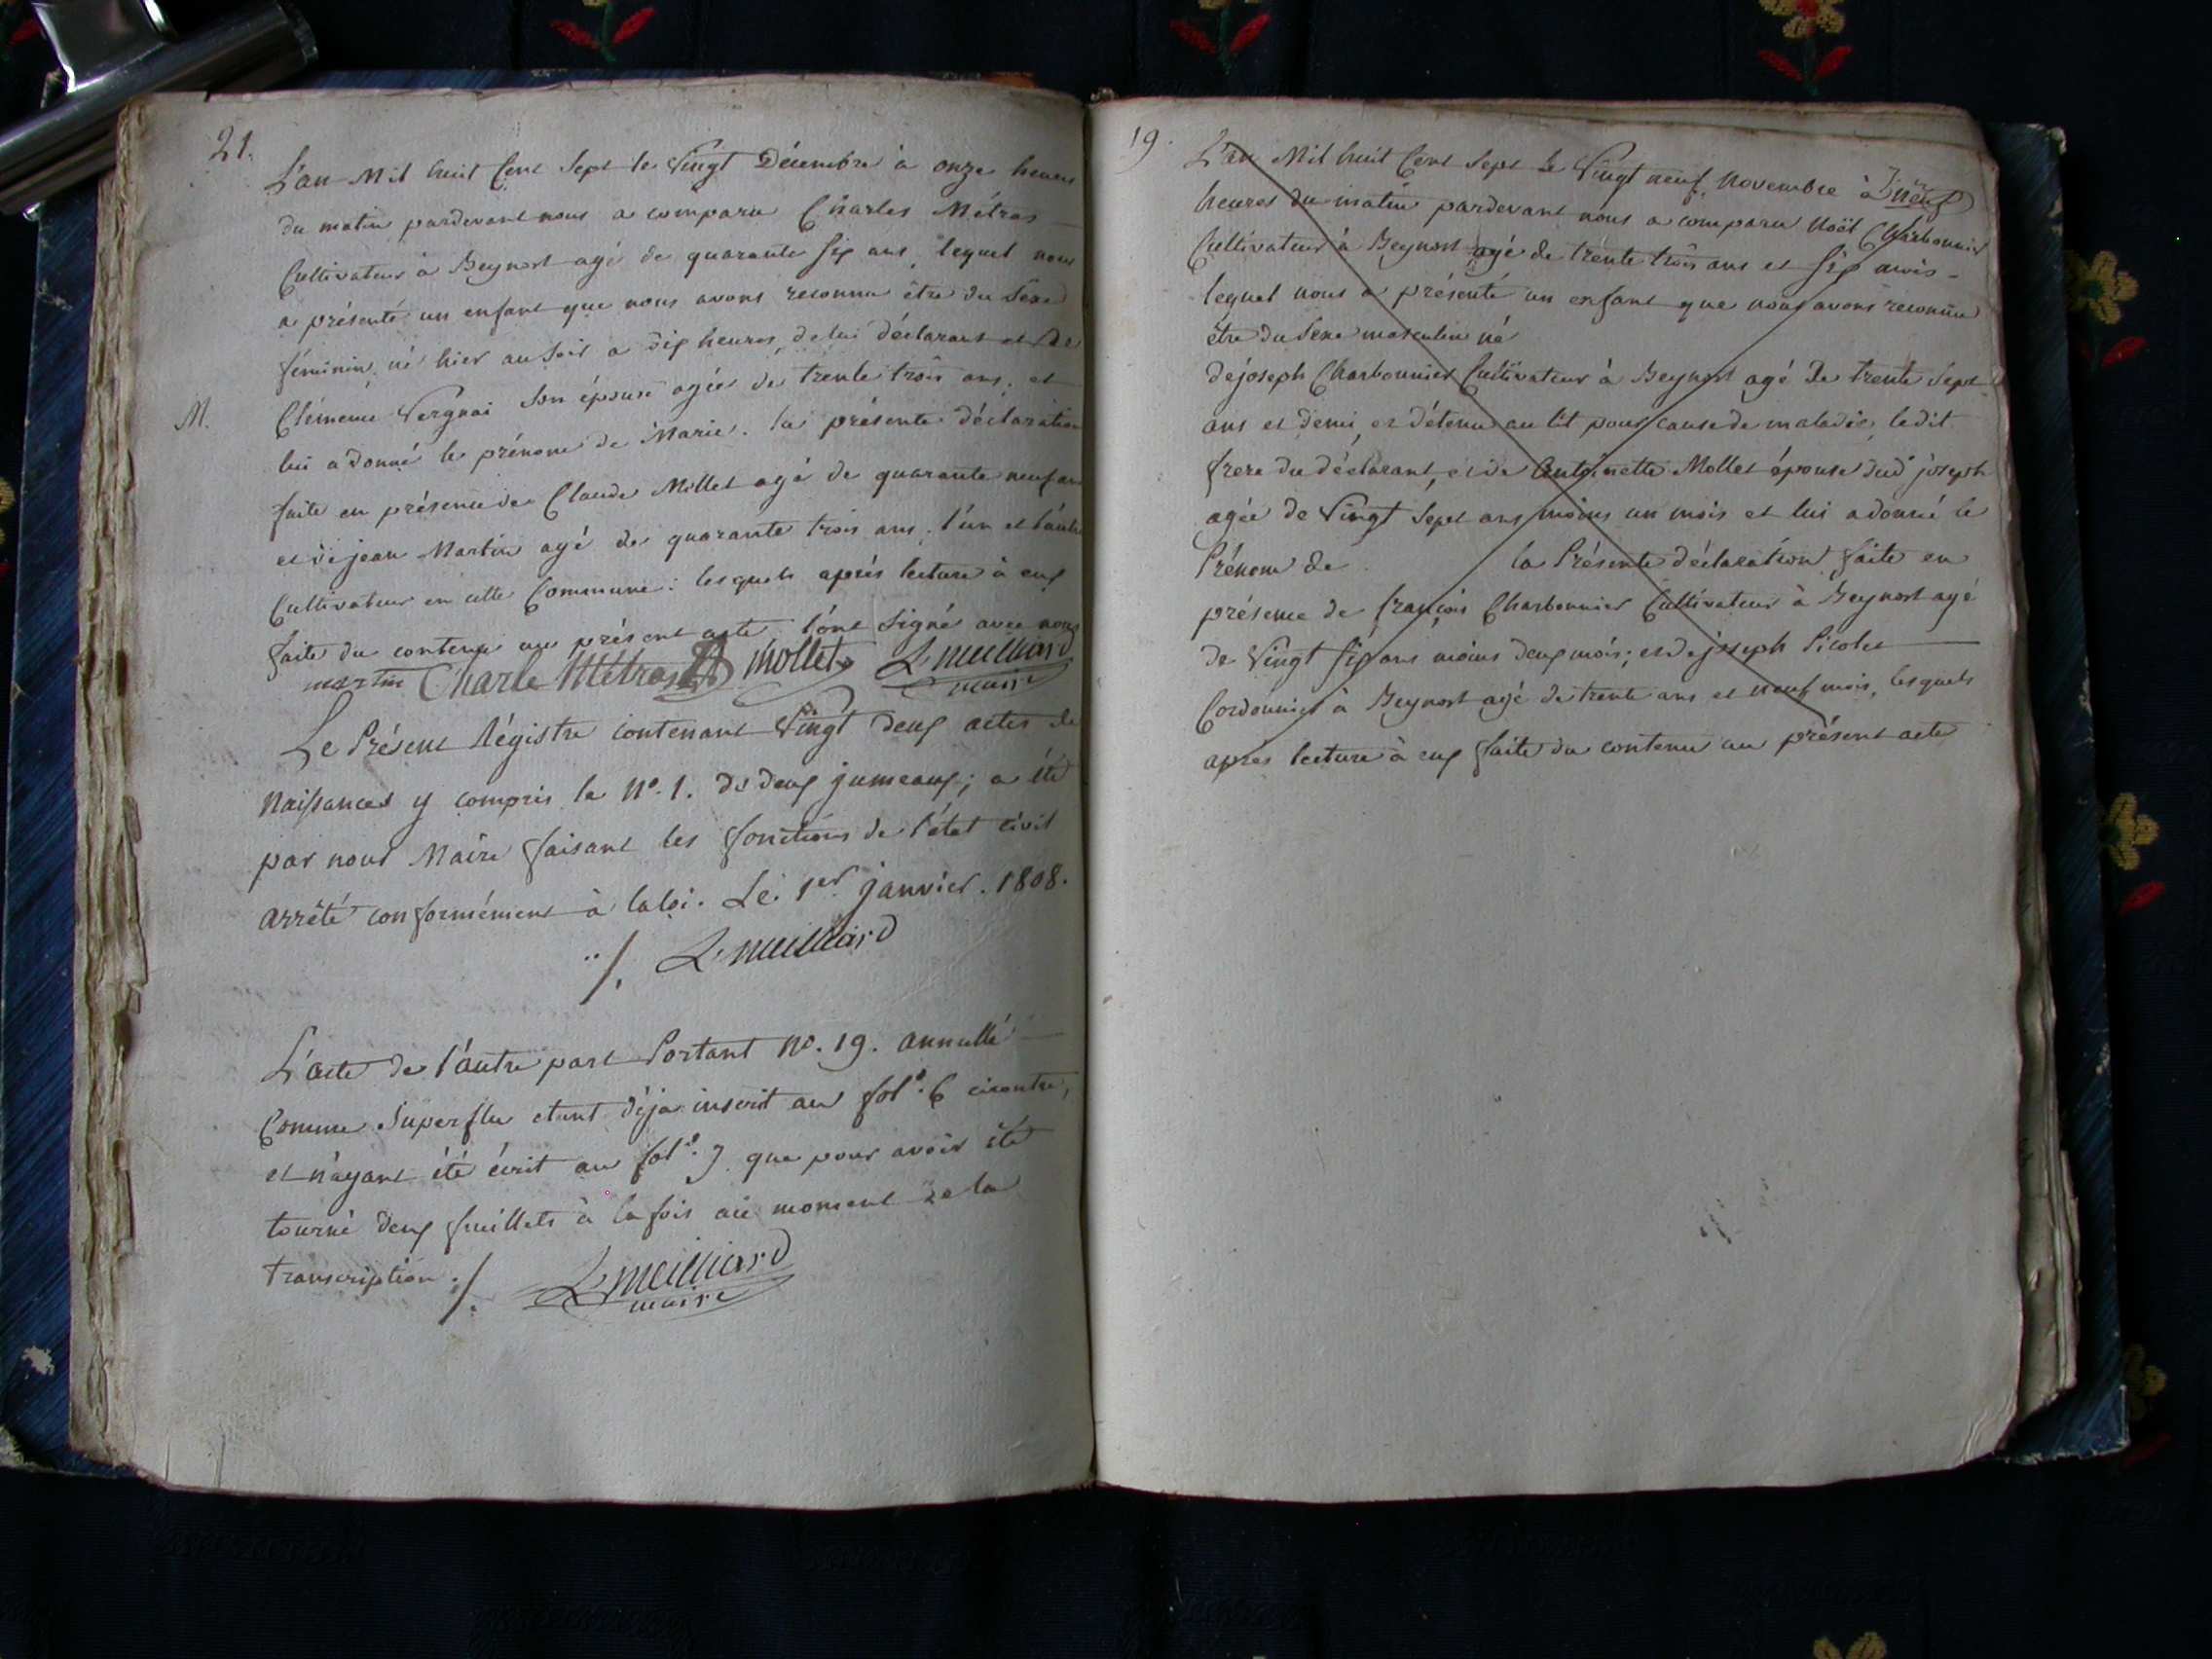 21.
L'an Mil huit Cent Sept le Vingt Décembre à onze heures
du matin pardevant nous a comparu Charles Métras
Cultivateur à Beynost agé de quarante six ans, lequel nous
a présenté un enfant que nous avons reconnu être du Sexe
féminin, né hier au soir a dix heures, de lui déclarant et de
M.
Clémence Vergnai son épouse agée de trente trois ans, et
lui a donné le prénom de Marie. la présente déclaration
faite en présence de Claude Mollet agé de quarante neuf ans
et de jean Martin agé de quarante trois ans, l'un et l'autre
Cultivateur en cette Commune: lesquels après lecture à eux
faite du contenu au présent acte l'ont Signé avec nous
martin Charle Métras mollet L. meilliard
maire
Le Présent Régistre contenant Vingt deux actes de
Naissances y compris le No. 1. de deux jumeaux; a été
par nous Maire faisant les fonctions de l'état civil
arrêté conformément à la loi. Le 1er janvier. 1808.
./. L. meilliard
L'acte de l'autre part Portant No. 19. annullé
Comme Superflu etant déja inscrit au folo. 6 cicontre,
et n'ayant été écrit au folo. 7 que pour avoir été
tourné deux feuillets à la fois au moment de la
transcription ./. L. meilliard
maire
19.
L'an Mil huit Cent Sept le Vingt neuf Novembre à neuf
heures du matin pardevant nous a comparu Noël Charbonnier
Cultivateur à Beynost agé de trente trois ans et six mois
lequel nous a présenté un enfant que nous avons reconnu
être du Sexe masculin né
de joseph Charbonnier Cultivateur à Beynost agé de trente sept
ans et demi, et détenu au lit pour cause de maladie, ledit
frere du déclarant, et de Antoinette Mollet épouse dud joseph
agée de Vingt Sept ans moins un mois et lui a donné le
Prénom de la Présente déclaration faite en
présence de françois Charbonnier Cultivateur à Beynost agé
de Vingt six ans moins deux mois; et de joseph Picolet
Cordonnier à Beynost agé de trente ans et neuf mois, lesquels
après lecture à eux faite du contenu au présent acte